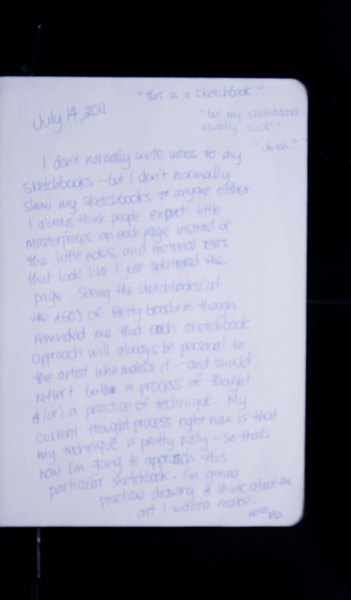 "This is a sketchbook."
July 14, 2011
"but my sketchbooks
usually suck."
I don't normally write intros to my
sketchbooks - but I don't normally
show my sketchbooks to anyone either.
I always think people expect little
masterpieces on each page instead of
the little notes, and material tests
that look like I just splattered the
page. Seeing the sketchbooks (at
the AGO) of Betty Goodwin though
reminded me that each sketchbook
approach will always be personal to
the artist who makes it - and should
reflect both a process of thought
& (or) a practice of technique. My
current thought process right now is that
my technique is pretty rusty - so that's
how I'm going to approach this
particular sketchbook. I'm gonna
practice drawing & think about the
art I wanna make.